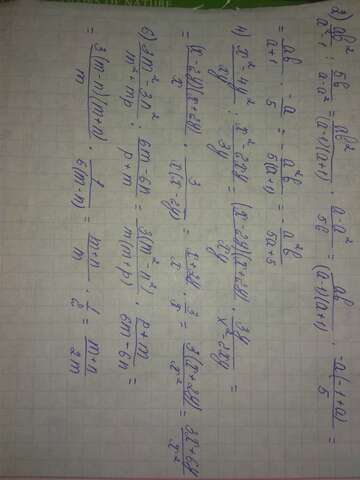 2) ab²/(a²-1) : 5b/(a-a²) = ab²/((a-1)(a+1)) · (a-a²)/5b = ab²/((a-1)(a+1)) · -a(-1+a)/5 =
= ab/(a+1) · -a/5 = - a²b/(5(a+1)) = - a²b/(5a+5)
4) (x²-4y²)/xy : (x²-2xy)/3y = (x-2y)(x+2y)/xy · 3y/(x²-2xy) =
= (x-2y)(x+2y)/x · 3/(x(x-2y)) = (x+2y)/x · 3/x = 3(x+2y)/x² = (3x+6y)/x²
6) (3m²-3n²)/(m²+mp) : (6m-6n)/(p+m) = 3(m²-n²)/(m(m+p)) · (p+m)/(6m-6n) =
= 3(m-n)(m+n)/m · 1/(6(m-n)) = (m+n)/m · 1/2 = (m+n)/2m